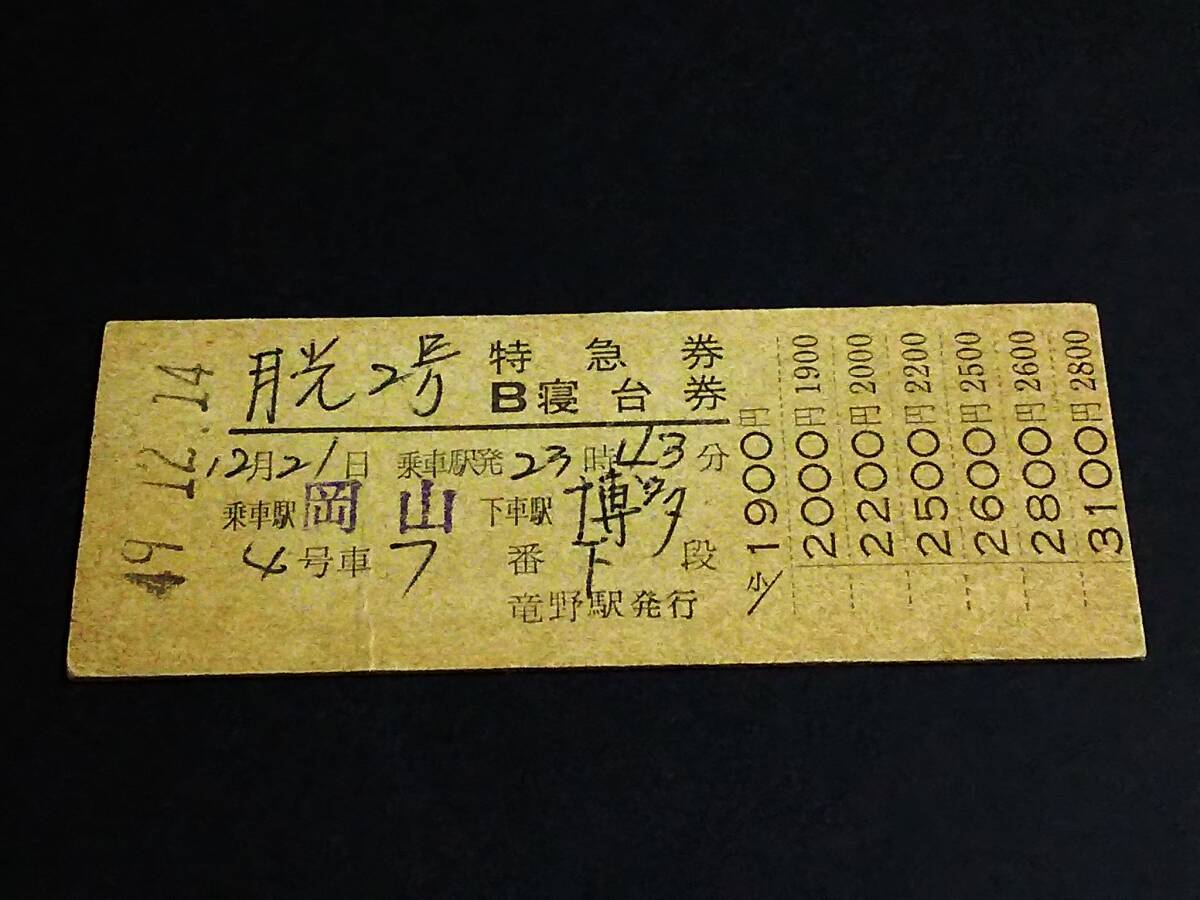 49.12.14
月光2号 特急券
B寝台券
12月21日 乗車駅発 23時43分
乗車駅 岡山 下車駅 博多
4号車 7番 下段
竜野駅発行
小/1900円
2000円 1900
2200円 2000
2500円 2200
2600円 2500
2800円 2600
3100円 2800